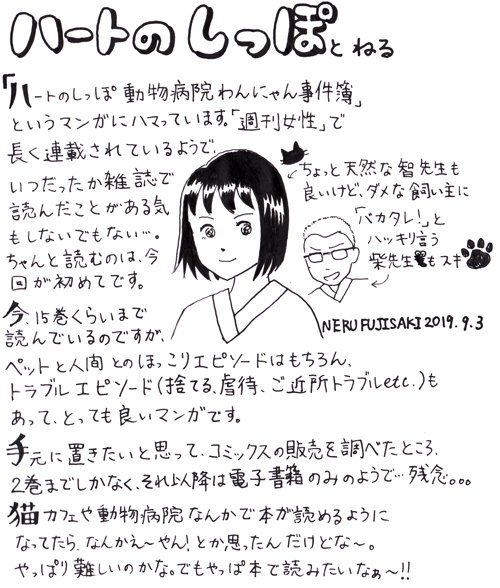 ハートのしっぽとねる
「ハートのしっぽ 動物病院わんにゃん事件簿」
というマンガにハマっています。「週刊女性」で
長く連載されているようで、
いつだったか雑誌で
読んだことがある気
もしないでもない…。
ちゃんと読むのは、今
回が初めてです。
ちょっと天然な智先生も
良いけど、ダメな飼い主に
「バカタレ!」と
ハッキリ言う
柴先生もスキ
NERU FUJISAKI 2019.9.3
今、15巻くらいまで
読んでいるのですが、
ペットと人間とのほっこりエピソードはもちろん、
トラブルエピソード(捨てる、虐待、ご近所トラブルetc.)も
あって、とっても良いマンガです。
手元に置きたいと思って、コミックスの販売を調べたところ、
2巻までしかなく、それ以降は電子書籍のみのようで…残念。。。
猫カフェや動物病院なんかで本が読めるように
なってたら、なんかえ〜やん!とか思ったんだけどな〜。
やっぱり難しいのかな。でもやっぱ本で読みたいなぁ〜!!